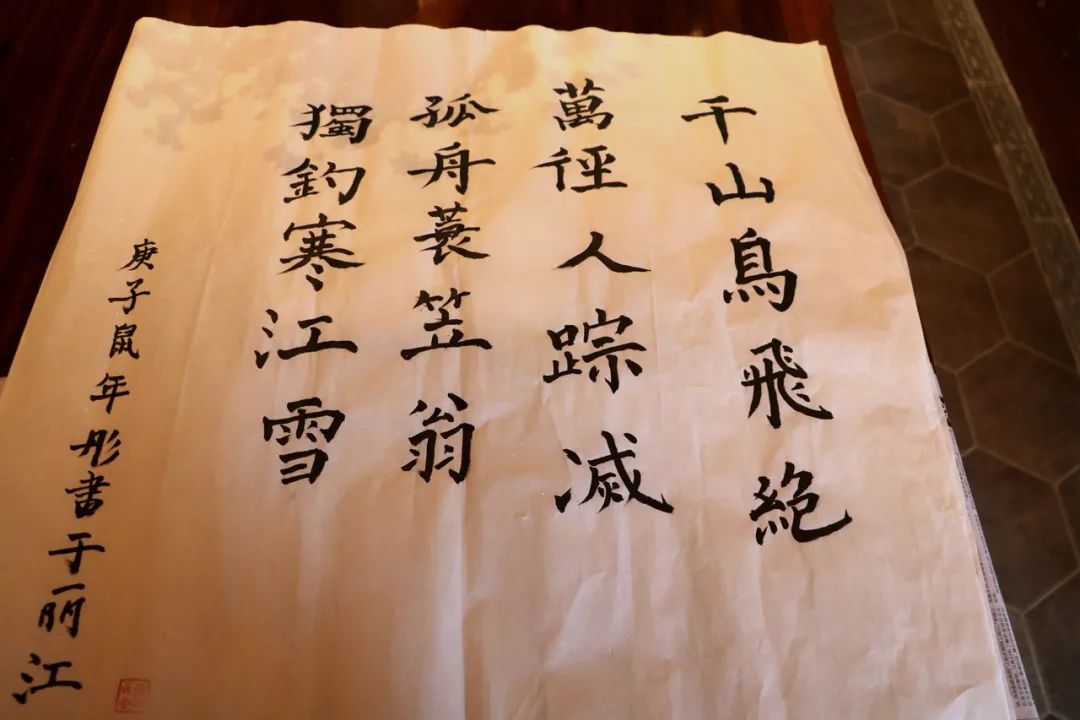 千山鳥飛絶
萬徑人踪滅
孤舟蓑笠翁
獨釣寒江雪
庚子鼠年彤書于丽江